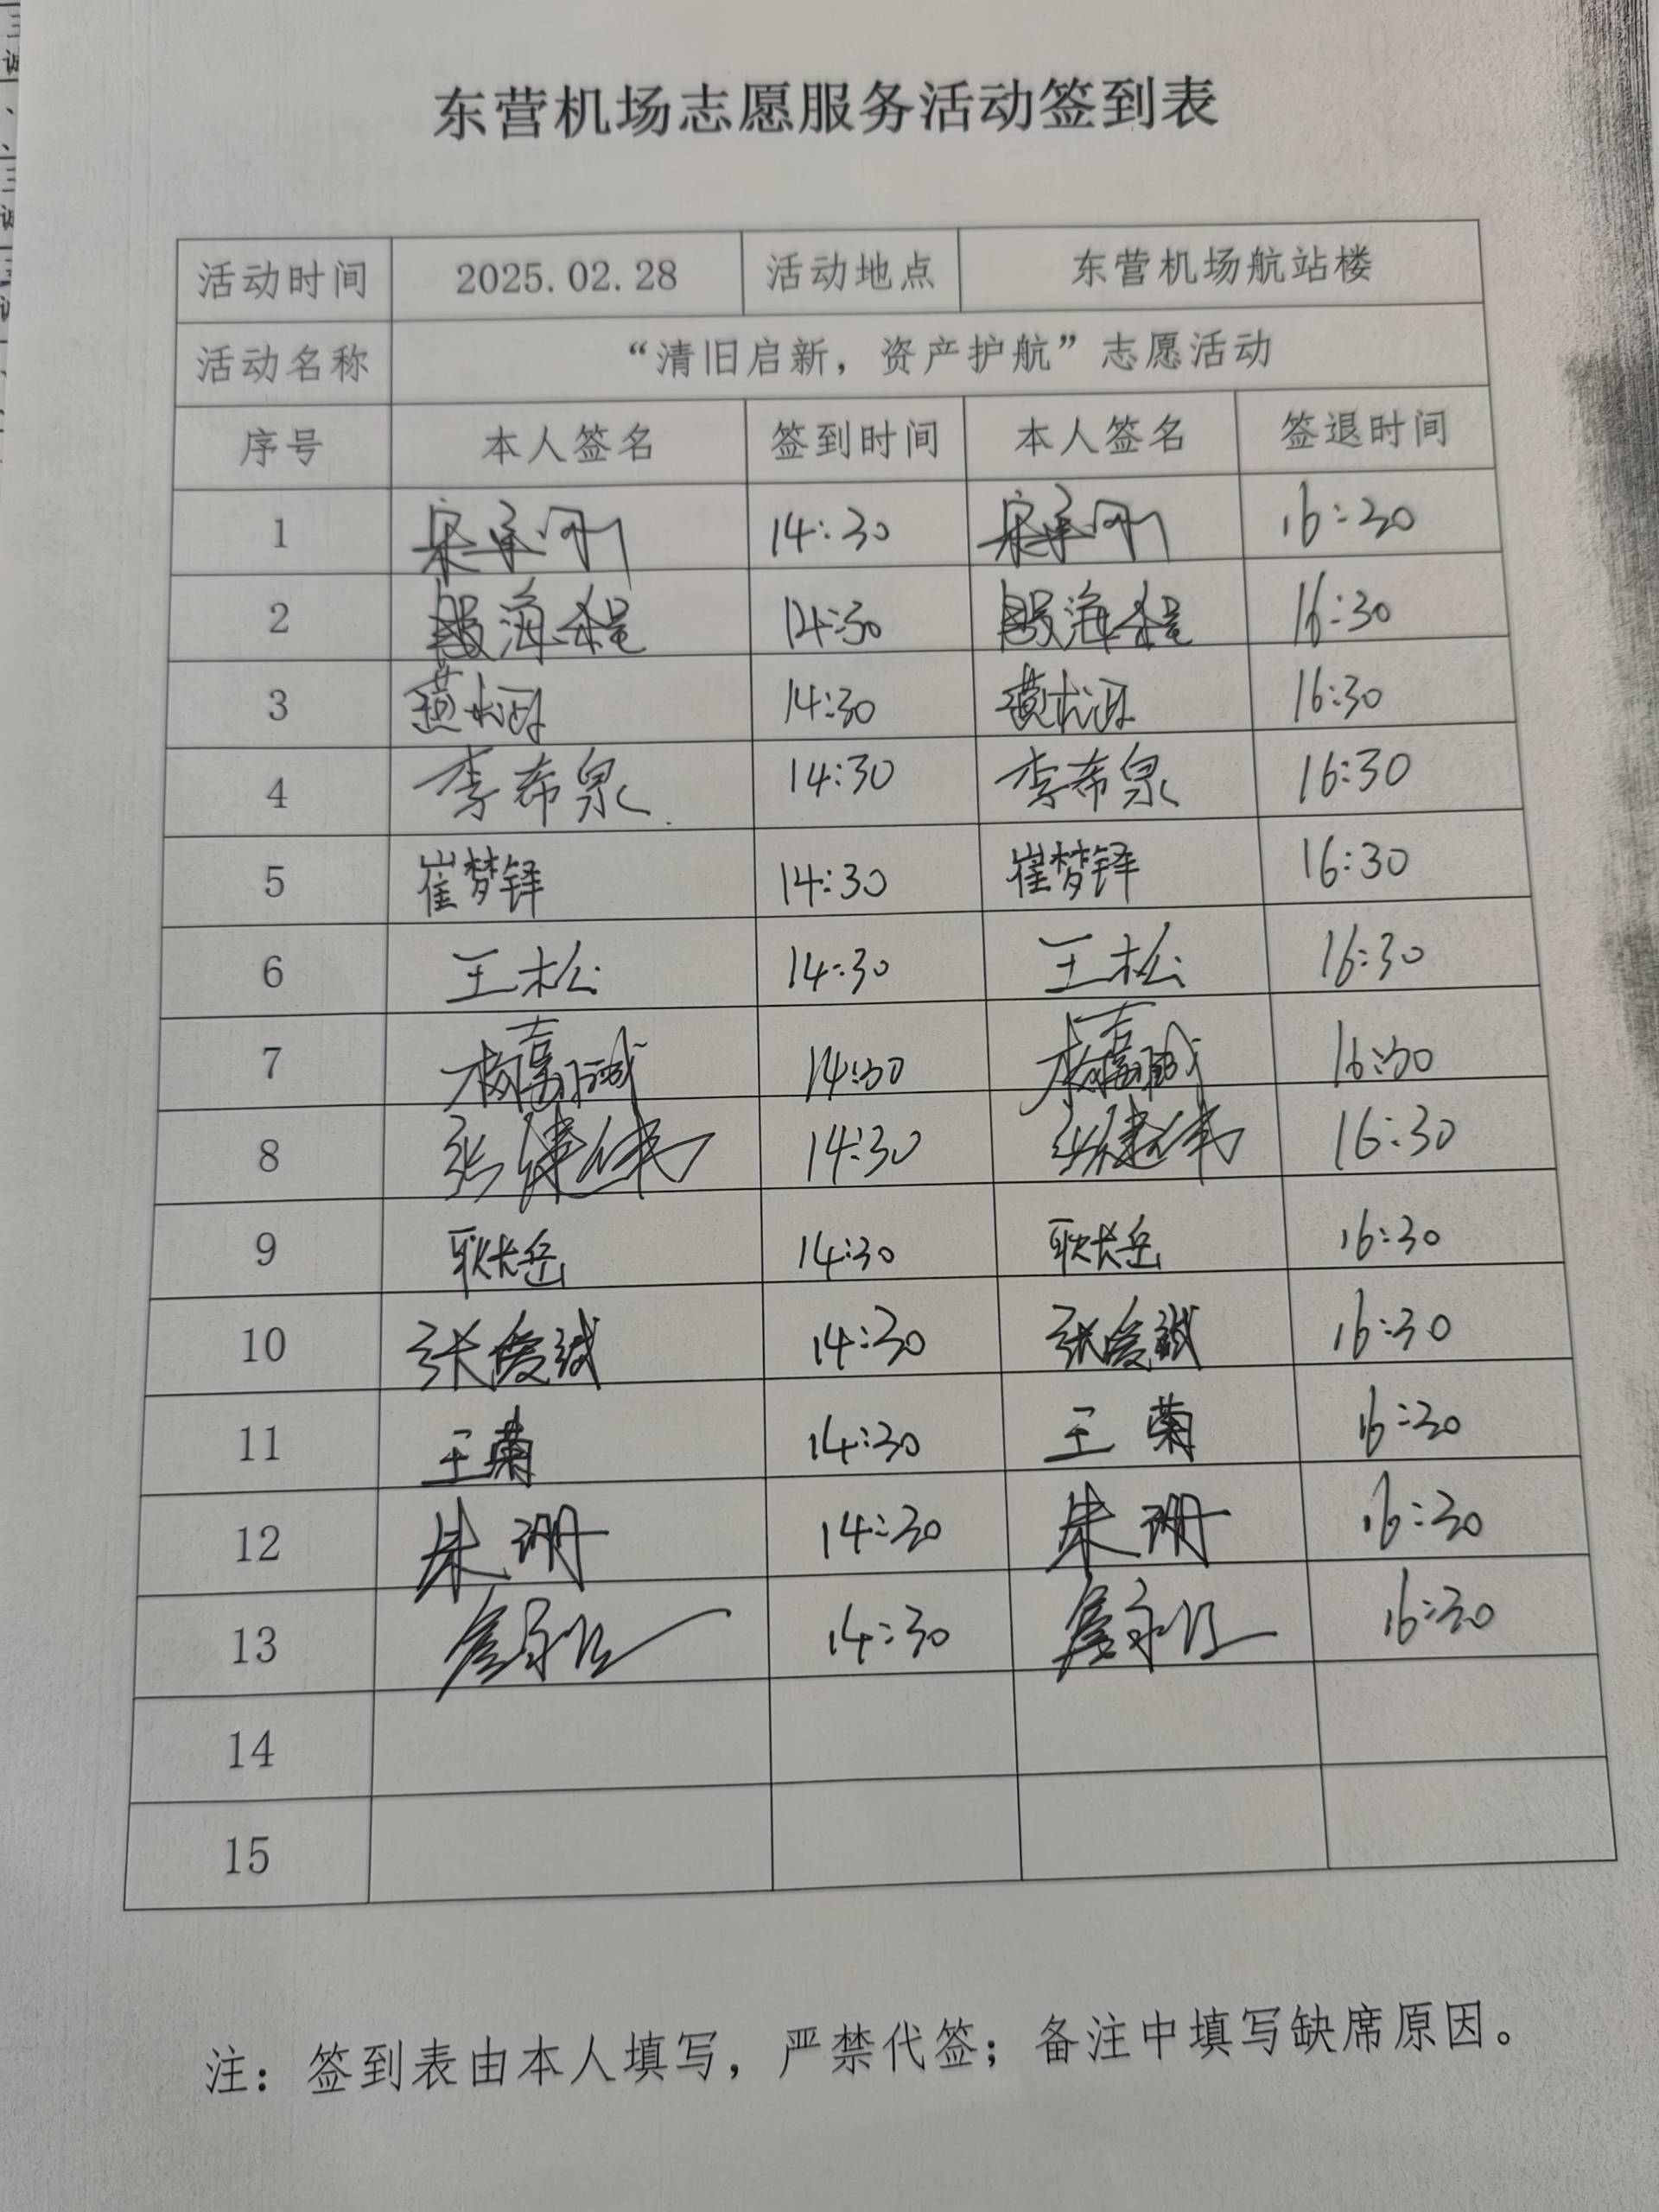 东营机场志愿服务活动签到表
活动时间 2025.02.28 活动地点 东营机场航站楼
活动名称 “清旧启新，资产护航”志愿活动
序号 本人签名 签到时间 本人签名 签退时间
1 14:30 16:30
2 14:30 16:30
3 14:30 16:30
4 李希泉 14:30 李希泉 16:30
5 崔梦铎 14:30 崔梦铎 16:30
6 王松 14:30 王松 16:30
7 杨嘉诚 14:30 杨嘉诚 16:30
8 张健伟 14:30 张健伟 16:30
9 耿大岳 14:30 耿大岳 16:30
10 张俊诚 14:30 张俊诚 16:30
11 王菊 14:30 王菊 16:30
12 朱珊 14:30 朱珊 16:30
13 14:30 16:30
14
15
注：签到表由本人填写，严禁代签；备注中填写缺席原因。